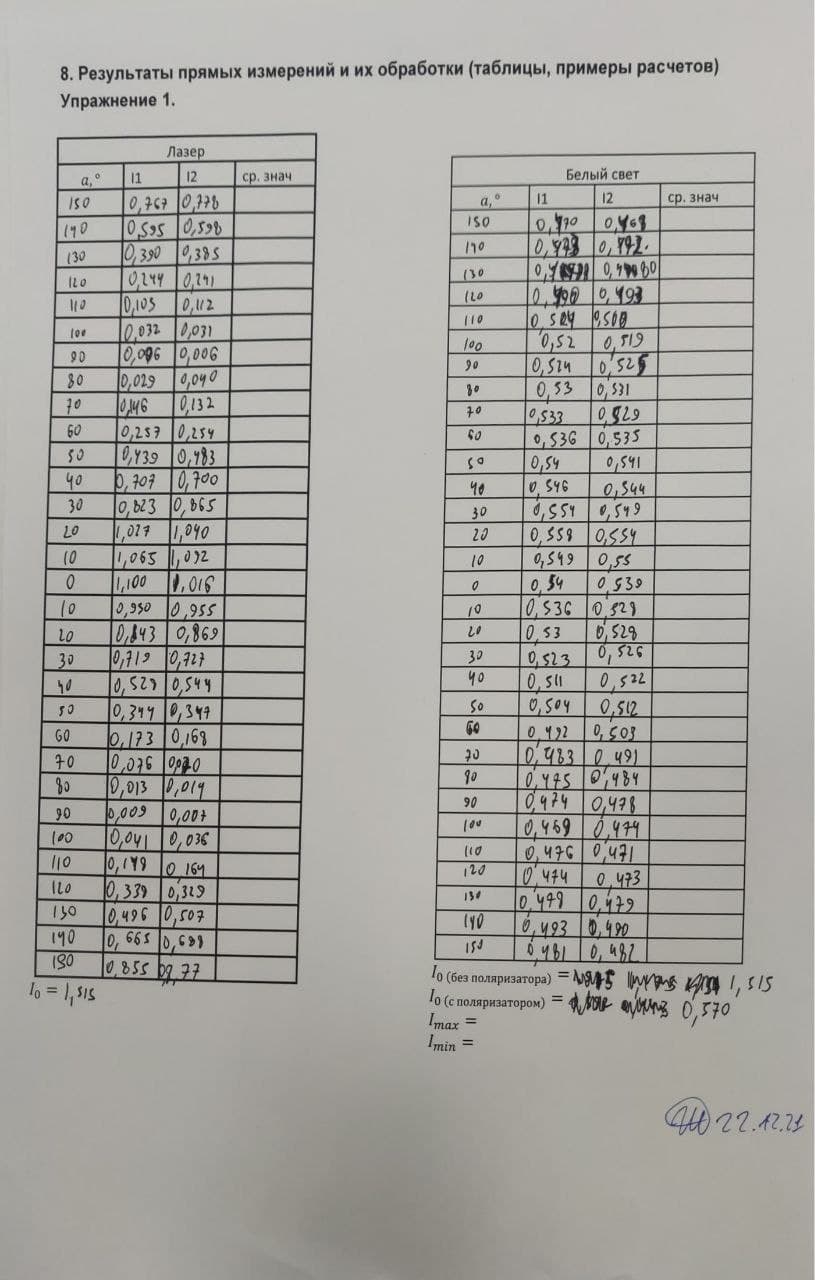 8. Результаты прямых измерений и их обработки (таблицы, примеры расчетов)
Упражнение 1.
Лазер
α,° I1 I2 ср. знач
150 0,767 0,778
140 0,595 0,598
130 0,390 0,385
120 0,244 0,241
110 0,105 0,112
100 0,032 0,031
90 0,006 0,006
80 0,029 0,040
70 0,146 0,132
60 0,257 0,254
50 0,439 0,483
40 0,707 0,700
30 0,823 0,865
20 1,027 1,040
10 1,065 1,092
0 1,100 1,016
10 0,950 0,955
20 0,843 0,869
30 0,719 0,727
40 0,529 0,544
50 0,344 0,347
60 0,173 0,168
70 0,076
80 0,013 0,014
90 0,009 0,007
100 0,041 0,036
110 0,179 0,164
120 0,339 0,329
130 0,496 0,507
140 0,665 0,688
150 0,855 0,77
I₀ = 1,515
Белый свет
α,° I1 I2 ср. знач
150 0,470 0,468
140 0,472.
130
120 0,490 0,493
110 0,504 0,508
100 0,52 0,519
90 0,524 0,525
80 0,53 0,531
70 0,533 0,529
60 0,536 0,535
50 0,54 0,541
40 0,546 0,544
30 0,554 0,549
20 0,558 0,554
10 0,549 0,55
0 0,54 0,539
10 0,536 0,528
20 0,53 0,528
30 0,523 0,526
40 0,511 0,522
50 0,504 0,512
60 0,492 0,503
70 0,483 0,491
80 0,475 0,484
90 0,474 0,478
100 0,469 0,474
110 0,476 0,471
120 0,474 0,473
130 0,479 0,479
140 0,493 0,490
150 0,481 0,482
I₀ (без поляризатора) = 1,515
I₀ (с поляризатором) = 0,570
Imax =
Imin =
22.12.21